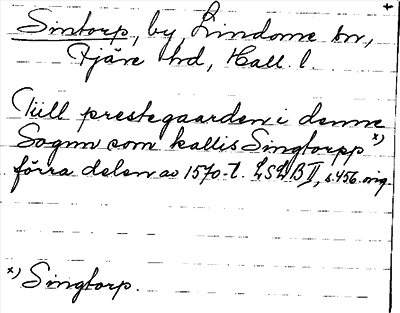 Sintorp, by, Lindome sn,
Fjäre hd, Hall. l.
Till prestegaarden i denne
Sognn som kallis Singtorpp x)
förra delen av 1570-t. LSLB II, s. 456 orig.
x) Singtorp.